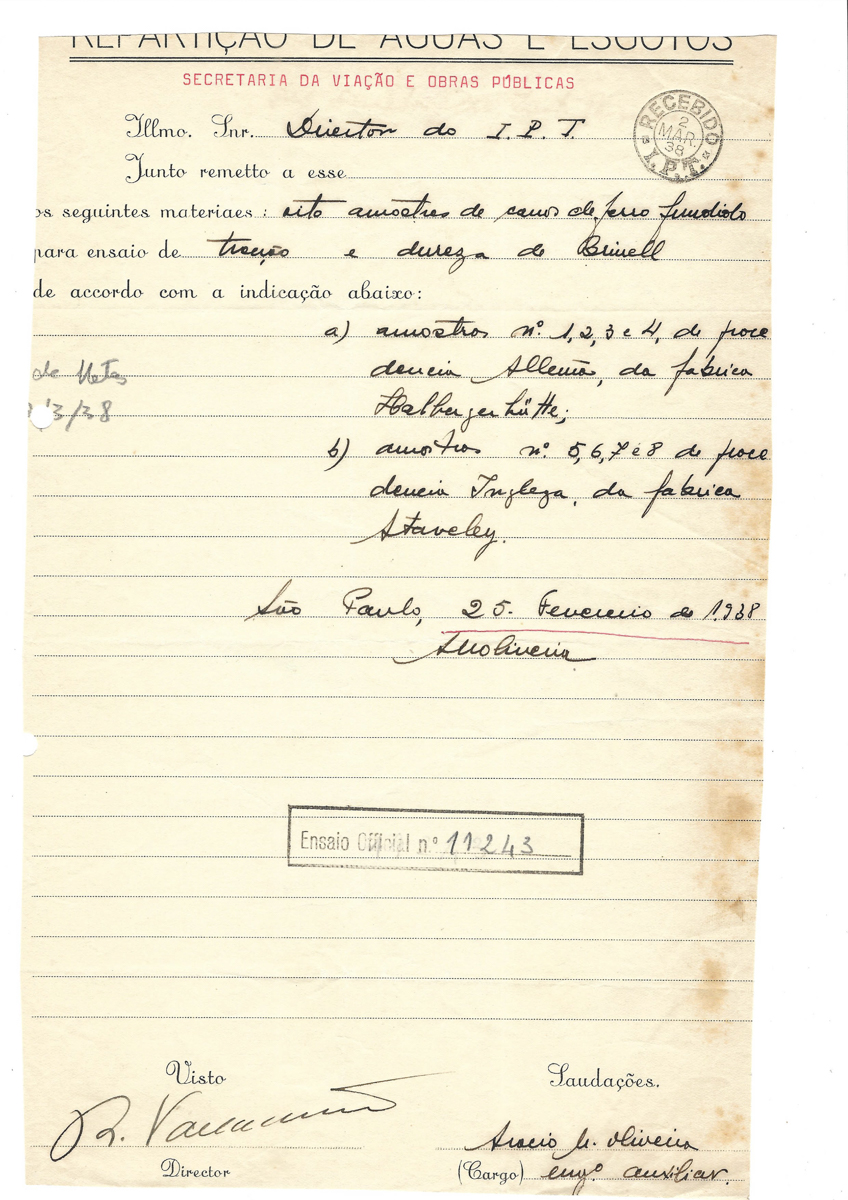 REPARTIÇÃO DE AGUAS E ESGOTOS
SECRETARIA DA VIAÇÃO E OBRAS PÚBLICAS
RECEBIDO
2
MAR.
38
I.P.T.
Illmo. Snr. Director do I. P. T.
Junto remetto a esse
os seguintes materiaes: oito amostras de canos de ferro fundido
para ensaio de tracção e dureza de Brinell
de accordo com a indicação abaixo:
a) amostras nº. 1, 2, 3 e 4, de proce
dencia Allemã, da fabrica
de Metaes
Halbergerhütte;
/3/38
b) amostras nº. 5, 6, 7 e 8 de proce
dencia Ingleza, da fabrica
Staveley.
São Paulo, 25. Fevereiro de 1.938
Oliveira
Ensaio Official n.º 11243
Visto
Saudações.
R.
M. Oliveira
Director
(Cargo) engº. auxiliar.